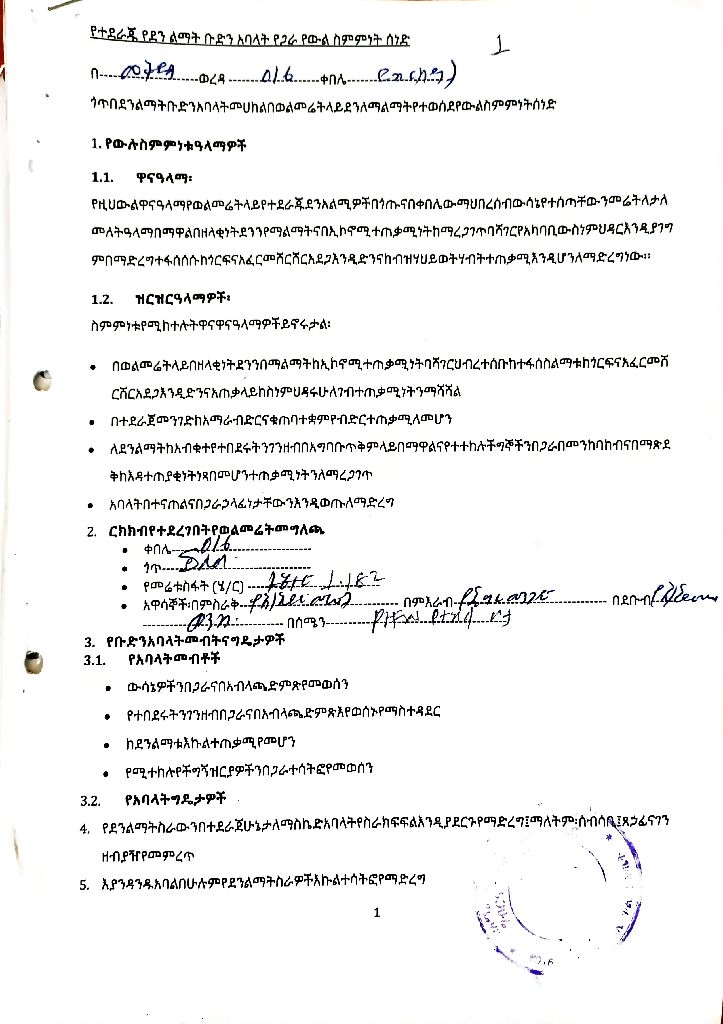 የተደራጁ የደን ልማት ቡድን አባላት የጋራ የውል ስምምነት ሰነድ
1
በ---- ወረዳ ---- 016 ቀበሌ ----
ጎጥበደንልማትቡድንአባላትመሀከልበወልመሬትላይደንለማልማትየተወሰደየውልስምምነትሰነድ
1. የውሉስምምነቱዓላማዎች
1.1. ዋናዓላማ፡
የዚህውልዋናዓላማየወልመሬትላይየተደራጁደንአልሚዎችበጎጡናበቀበሌውማህበረሰብውሳኔየተሰጣቸውንመሬትለታለ
መለትዓላማበማዋልበዘላቂነትደንንየማልማትናበኢኮኖሚተጠቃሚነትከማረጋገጥባሻገርየአካባቢውስነምህዳርእንዲያገግ
ምበማድረግተፋሰሱከጎርፍናአፈርመሸርሸርአደጋእንዲድንናከብዝሃህይወትሃብትተጠቃሚእንዲሆንለማድረግነው፡፡
1.2. ዝርዝርዓላማዎች፡
ስምምነቱየሚከተሉትዋናዋናዓላማዎችይኖሩታል፡
• በወልመሬትላይበዘላቂነትደንንበማልማትከኢኮኖሚተጠቃሚነትባሻገርህብረተሰቡከተፋሰስልማቱከጎርፍናአፈርመሸ
ርሸርአደጋእንዲድንናአጠቃላይከስነምህዳሩሁለገብተጠቃሚነትንማሻሻል
• በተደራጀመንገድከአማራብድርናቁጠባተቋምየብድርተጠቃሚለመሆን
• ለደንልማትከአብቁተየተበደሩትንገንዘብበአግባቡጥቅምላይበማዋልናየተተከሉችግኞችንበጋራበመንከባከብናበማጽደ
ቅከእዳተጠያቂነትነጻበመሆንተጠቃሚነትንለማረጋገጥ
• አባላትበተናጠልናበጋራኃላፊነታቸውንእንዲወጡለማድረግ
2. ርክክብየተደረገበትየወልመሬትመግለጫ
• ቀበሌ---016----
• ጎጥ----
• የመሬቱስፋት (ሄ/ር) ---- 1.182
• አዋሳኞች፡በምስራቅ---- በምእራብ---- በደቡብ
---- በሰሜን----
3. የቡድንአባላትመብትናግዴታዎች
3.1. የአባላትመብቶች
• ውሳኔዎችንበጋራናበአብላጫድምጽየመወሰን
• የተበደሩትንገንዘብበጋራናበአብላጫድምጽእየወሰኑየማስተዳደር
• ከደንልማቱእኩልተጠቃሚየመሆን
• የሚተከሉየችግኝዝርያዎችንበጋራተሳትፎየመወሰን
3.2. የአባላትግዴታዎች
4. የደንልማትስራውንበተደራጀሁኔታለማስኬድአባላትየስራክፍፍልእንዲያደርጉየማድረግ፤ማለትም፡ሰብሳቢ፤ጸኃፊናገን
ዘብያዥየመምረጥ
5. እያንዳንዱአባልበሁሉምየደንልማትስራዎችእኩልተሳትፎየማድረግ
1